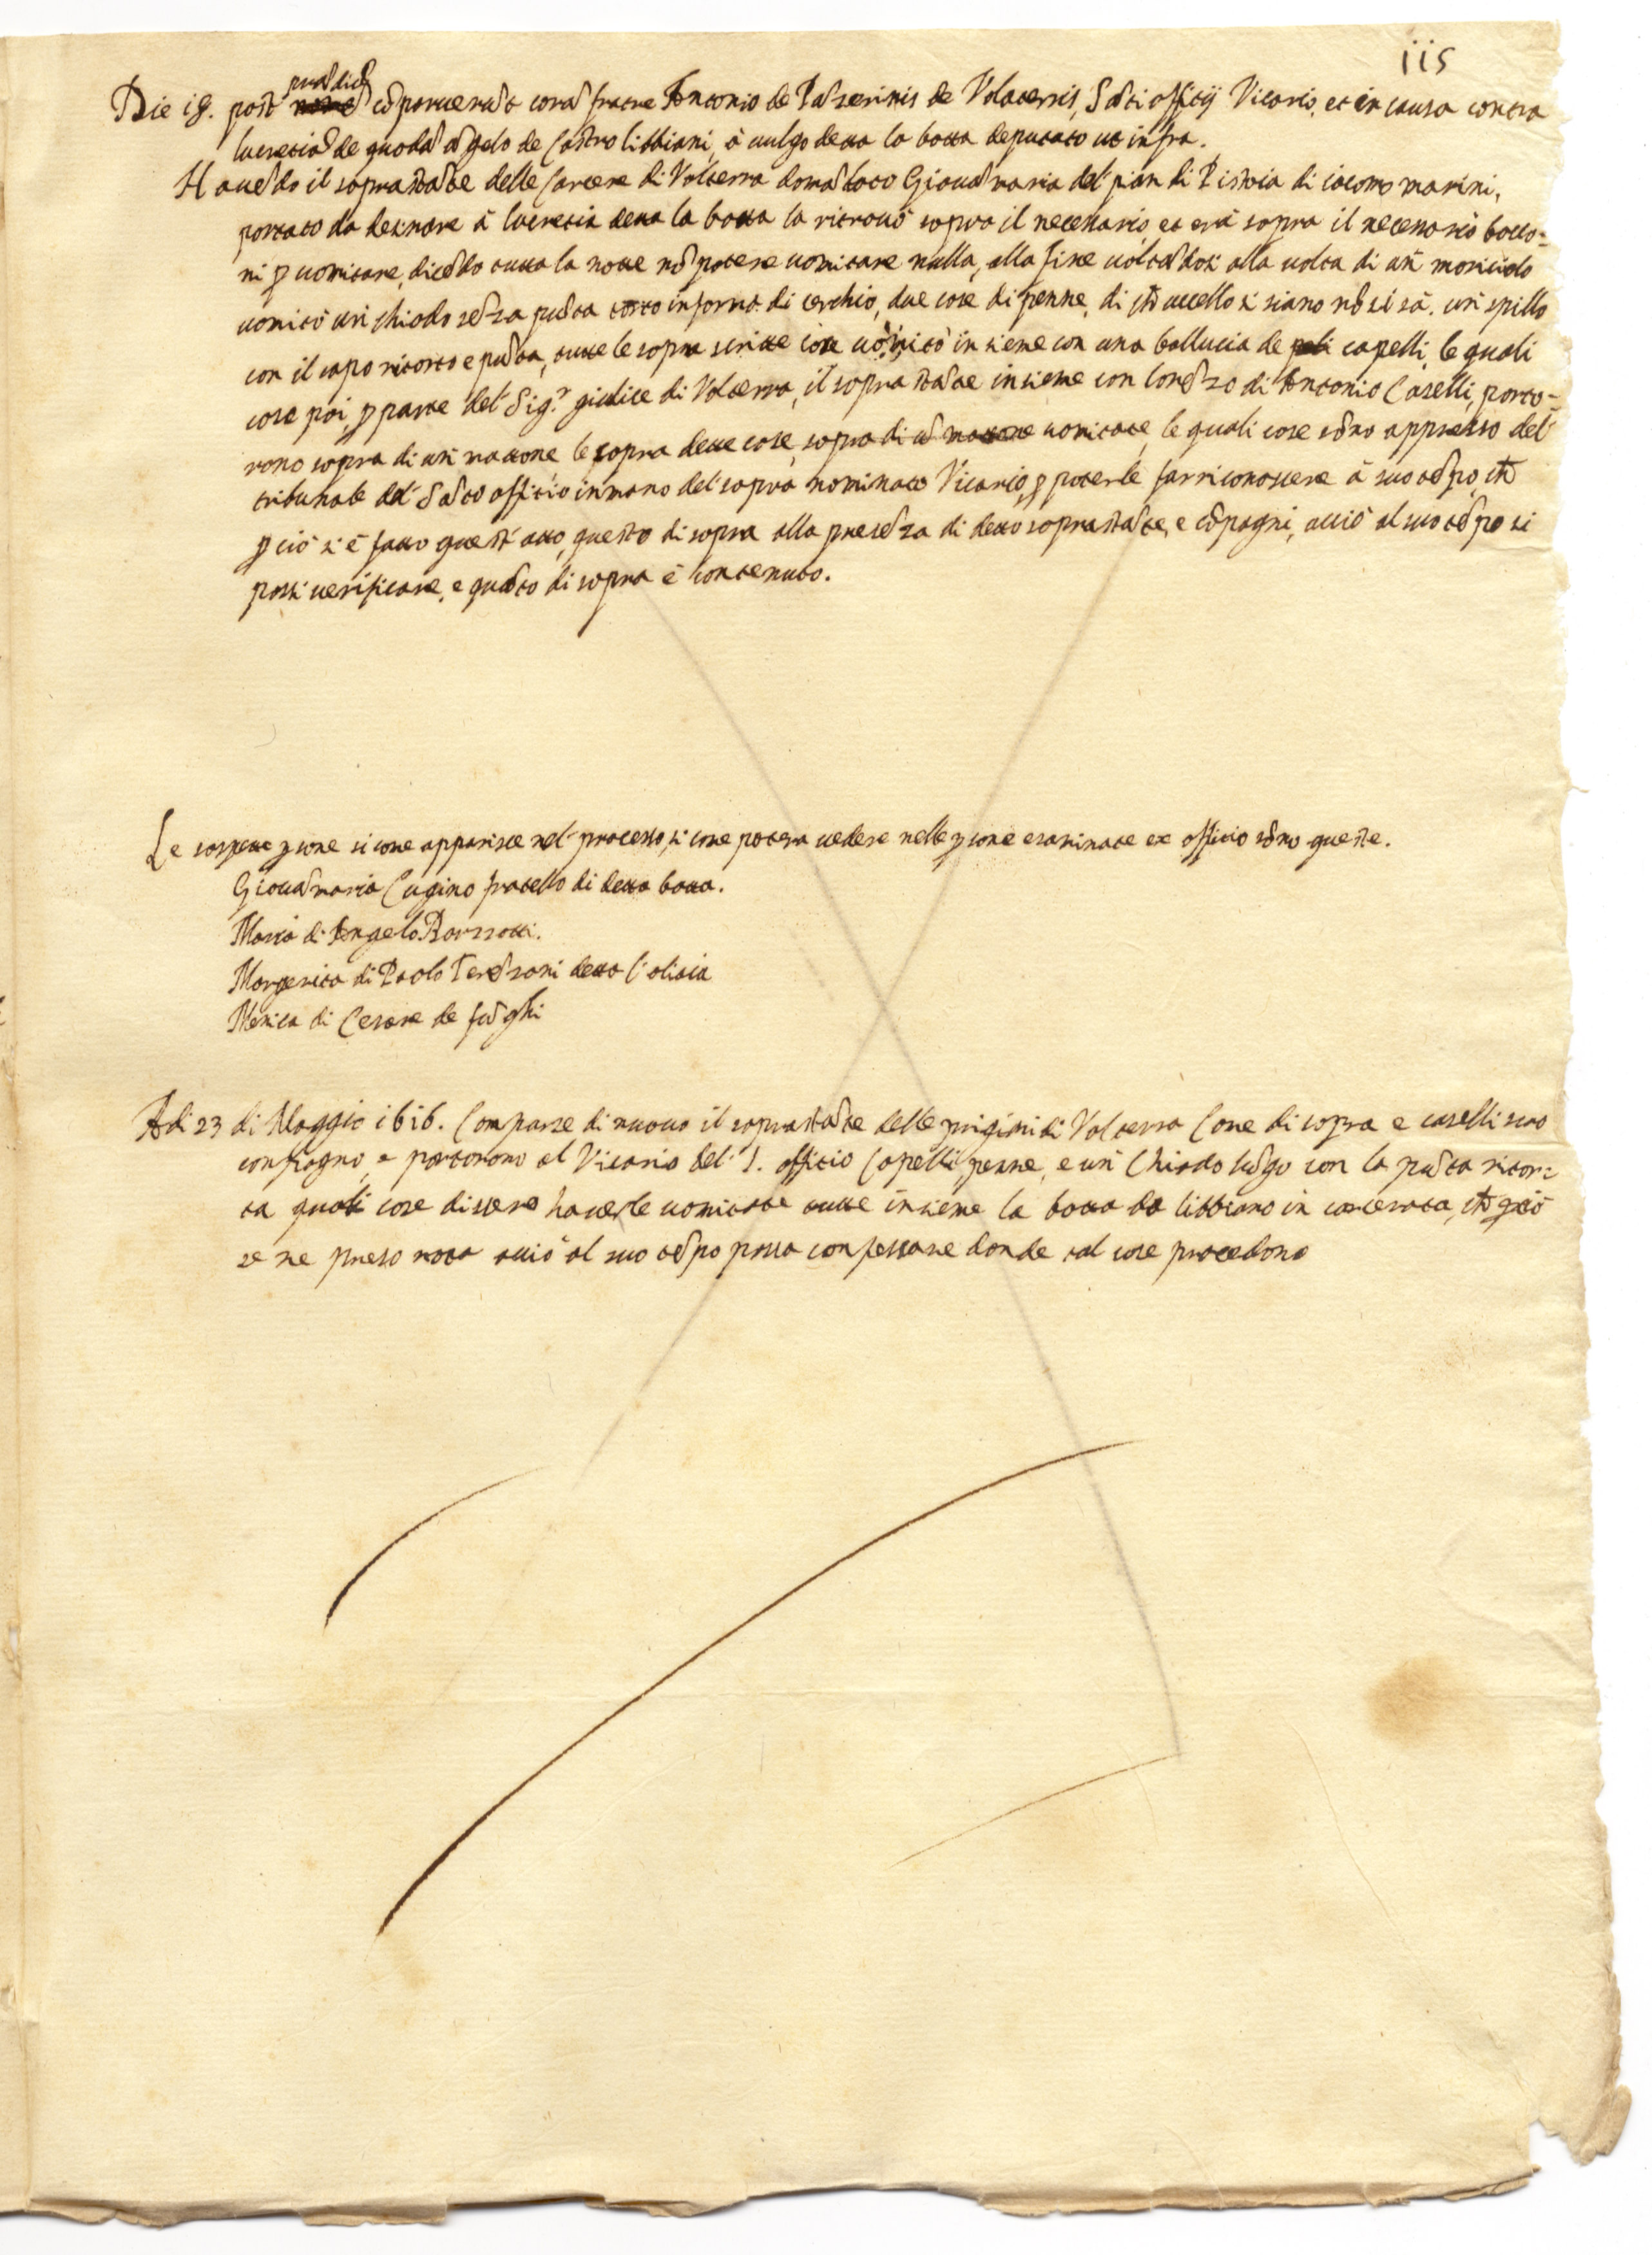 115
prãdiũ
Die 18. post cõparuerũt corã fratre Antonio de Pãserinis de Volaterris, Sãti offitij Vicario, et in causa contra
lucretiã de quodã ãgelo de Castro libbiani, à vulgo detta la botta deputato ut infra.
Hauẽdo il soprastãte delle Carcere di Volterra domãdato Giouãmaria del pian di Pistoia di iacomo marini,
portato da desinare à lucretia detta la botta la ritrouò sopra il necessario, et era sopra il necessario bocco=
ni ꝑ uomitare, dicẽdo tutta la notte nõ potere uomitare nulla, alla fine uoltãdosi alla uolta di un muriciolo
uomitò un chiodo sẽza pũta torto in forma di cerchio, due cose di penne, di chē uccello si siano nõ si sà. un spillo
con il capo ritorto e pũta, tutte le sopra scritte cose uomitò in sieme con una ballucia de peli capelli, le quali
cose poi, ꝑ parte del Sig.r giudice di Volterra, il soprastãte insieme con lorẽzo di Antonio Caselli, porto=
rono sopra di un mattone le sopra dette cose, sopra di ũ mattone uomitate, le quali cose sõno appresso del
tribunale del Sãto offitio in mano del sopra nominato Vicario, ꝑ poterle far riconoscere à suo tẽpo, chē
ꝑ ciò si è fatto quest' atto, questo di sopra alla presẽza di detto soprastãte, e cõpagni, acciò al suo tẽpo si
possi uerificare, e quãto di sopra è contenuto.
Le sospette ꝑsone si come apparisce nel processo, si come potera uedere nelle ꝑsone esaminate ex offitio sõno queste.
Giouãmaria Cugino fratello di detta botta.
Maria di Angelo Barzzotti.
Margerita di Paolo Terẽzani detta l'olicia
Menica di Cesare de fũghi
Adi 23 di Maggio 1616. Comparse di nuouo il soprastãte delle prigioni di Volterra Come di sopra e caselli suo
compagno, e portorono al Vicario del S. offitio Capelli, penne, e un Chiodo lũgo con la pũta ritor=
ta quali cose dissero hauerle uomitate tutte insieme la botta da libbiano in carcerata, chē ꝑciò
se ne preso nota acciò al suo tẽpo possa confessare donde tal cose procedono